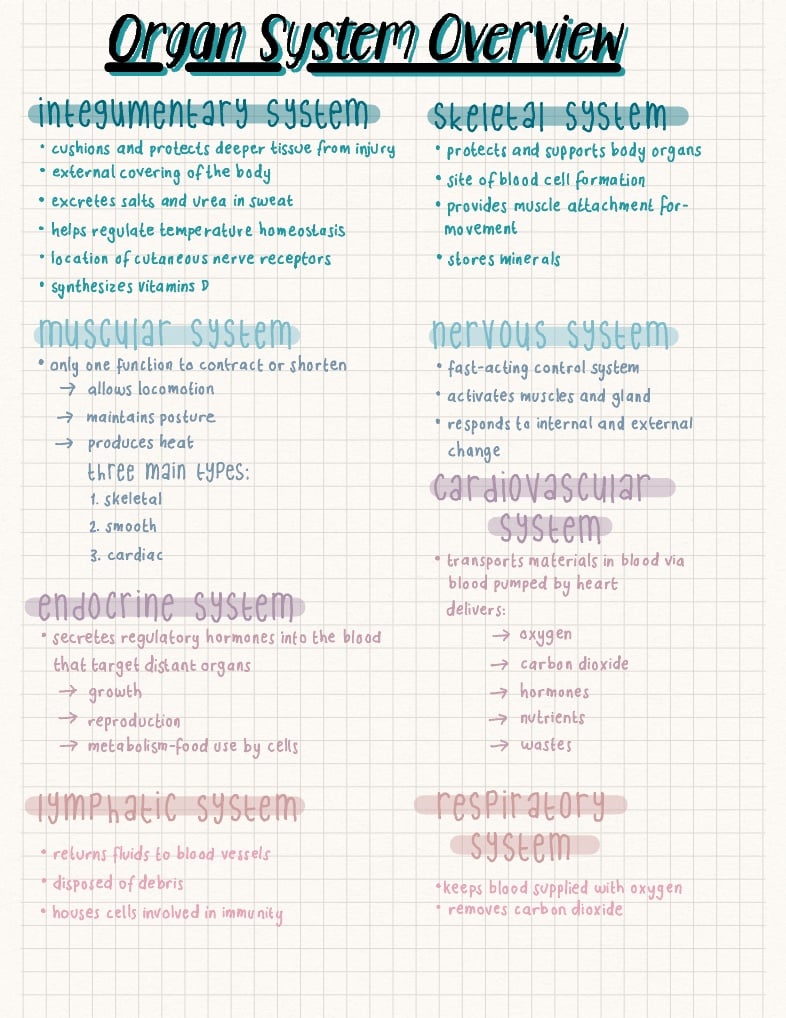 Organ System Overview
integumentary system
• cushions and protects deeper tissue from injury
• external covering of the body
• excretes salts and urea in sweat
• helps regulate temperature homeostasis
• location of cutaneous nerve receptors
• synthesizes vitamins D
skeletal system
• protects and supports body organs
• site of blood cell formation
• provides muscle attachment for-
movement
• stores minerals
muscular system
• only one function to contract or shorten
→ allows locomotion
→ maintains posture
→ produces heat
three main types:
1. skeletal
2. smooth
3. cardiac
nervous system
• fast-acting control system
• activates muscles and gland
• responds to internal and external
change
cardiovascular
system
• transports materials in blood via
blood pumped by heart
delivers:
→ oxygen
→ carbon dioxide
→ hormones
→ nutrients
→ wastes
endocrine system
• secretes regulatory hormones into the blood
that target distant organs
→ growth
→ reproduction
→ metabolism-food use by cells
lymphatic system
• returns fluids to blood vessels
• disposed of debris
• houses cells involved in immunity
respiratory
system
• keeps blood supplied with oxygen
• removes carbon dioxide